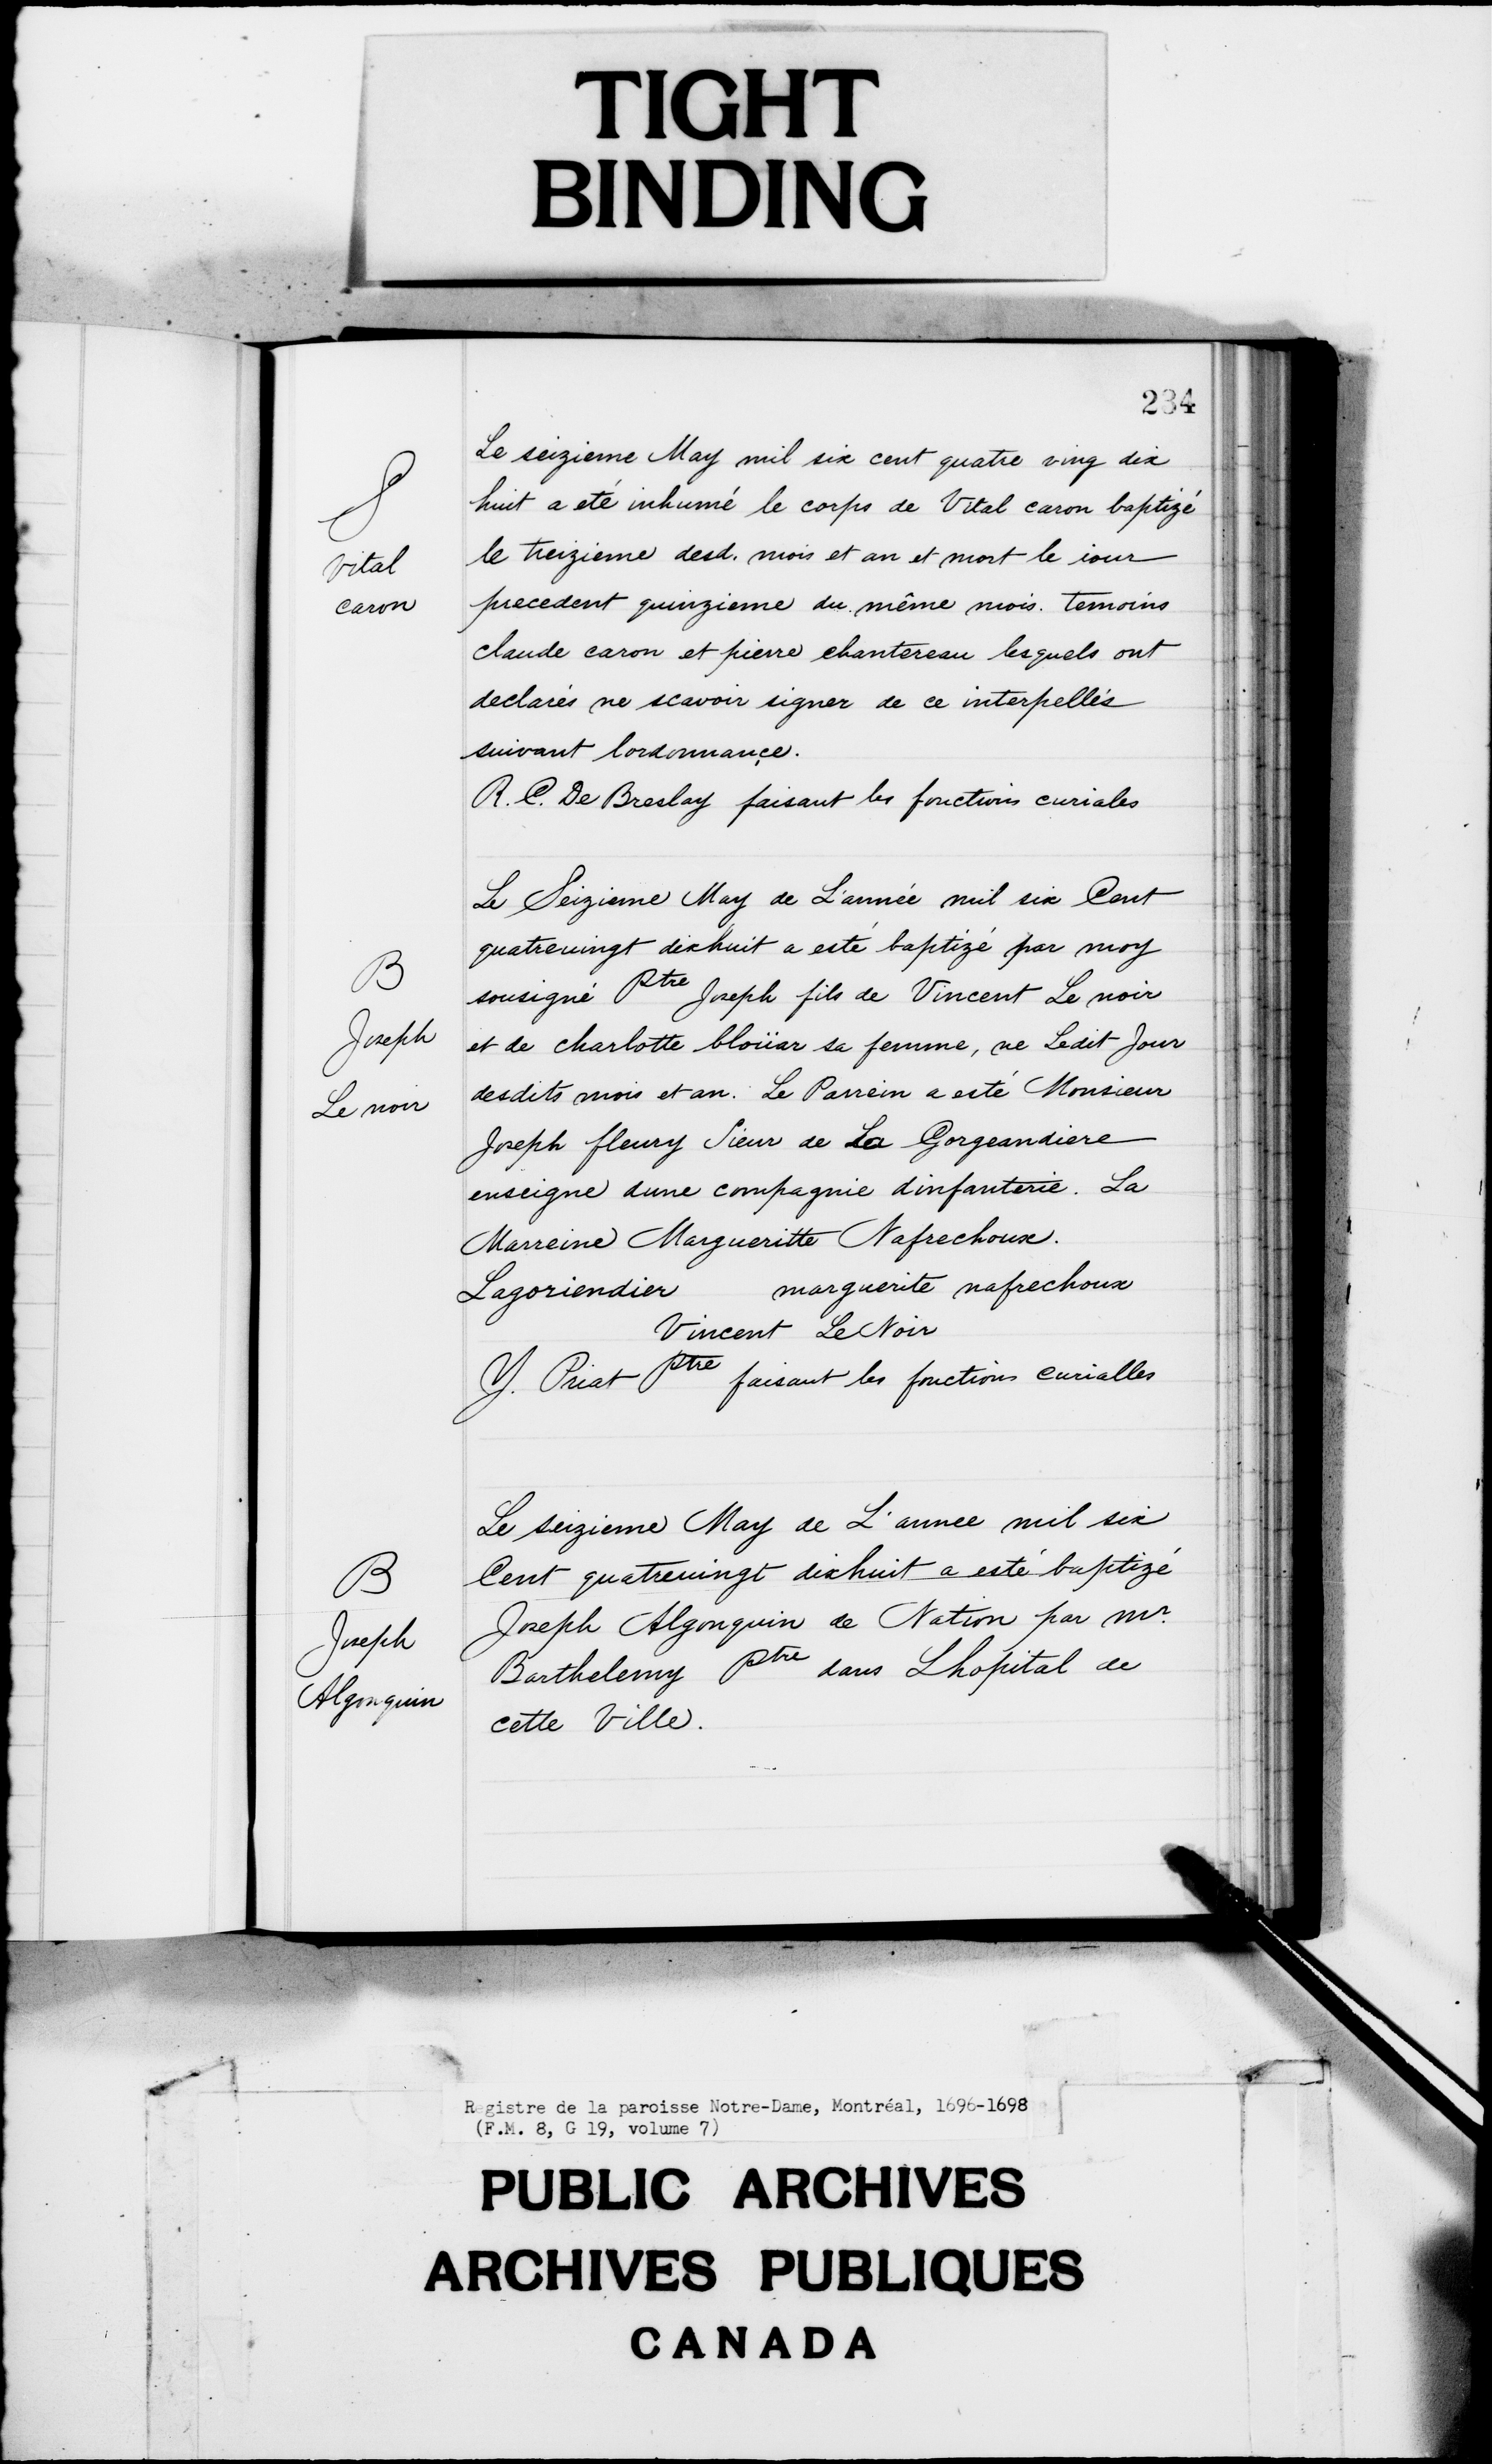 TIGHT
BINDING
234
S
Vital
caron
Le seizieme May mil six cent quatre ving dix
huit a eté inhumé le corps de Vital caron baptizé
le treizieme desd. mois et an et mort le iour
precedent quinzieme du même mois. Temoins
claude caron et pierre chantereau lesquels ont
declarés ne scavoir signer de ce interpellés
suivant lordonnance.
R. C. De Breslay faisant les fonctions curiales
B
Joseph
Le noir
Le Seizieme May de L'année mil six Cent
quatreuingt dixhuit a esté baptizé par moy
sousigné Ptre Joseph fils de Vincent Le noir
et de charlotte bloüar sa femme, ne Ledit Jour
desdits mois et an. Le Parrein a esté Monsieur
Joseph fleury Sieur de La Gorgeandiere
enseigne dune compagnie dinfanterie. La
Marreine Margueritte Nafrechoux.
Lagoriendier marguerite nafrechoux
Vincent Le Noir
Y. Priat ptre faisant les fonctions curialles
B
Joseph
Algonquin
Le seizieme May de L'annee mil six
Cent quatreuingt dixhuit a esté baptizé
Joseph Algonquin de Nation par mr.
Barthelemy Ptre dans Lhopital de
cette Ville.
Registre de la paroisse Notre-Dame, Montréal, 1696-1698
(F.M. 8, G 19, volume 7)
PUBLIC ARCHIVES
ARCHIVES PUBLIQUES
CANADA